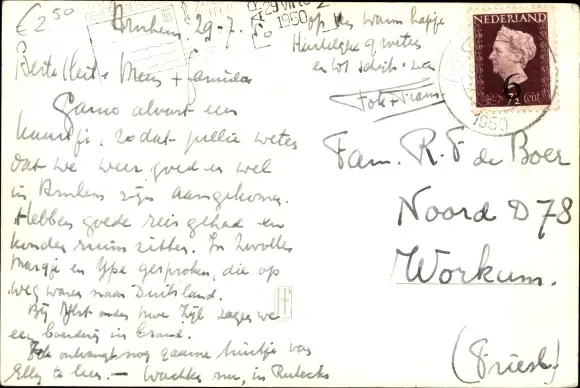 € 2.50
Arnhem. 29-7.
29 VII
1950
op
warm hapje
Hartelijke groeten
en tot
NEDERLAND
6
1950
Beste + Mens + familie
alvast een
kaartje, zodat jullie weten
dat we weer goed en wel
in Arnhem zijn aangekomen.
Hebben goede reis gehad en
konden ruim zitten. In Zwolle
Margje en Ype gesproken, die op
weg waren naar Duitsland.
Bij IJlst onder zagen we
een boerderij in brand.
ontvangt nog gaarne van
Elly te leen. — Wachten nu, in
Fam. R. F de Boer
Noord D 78
Workum.
(Friesl)